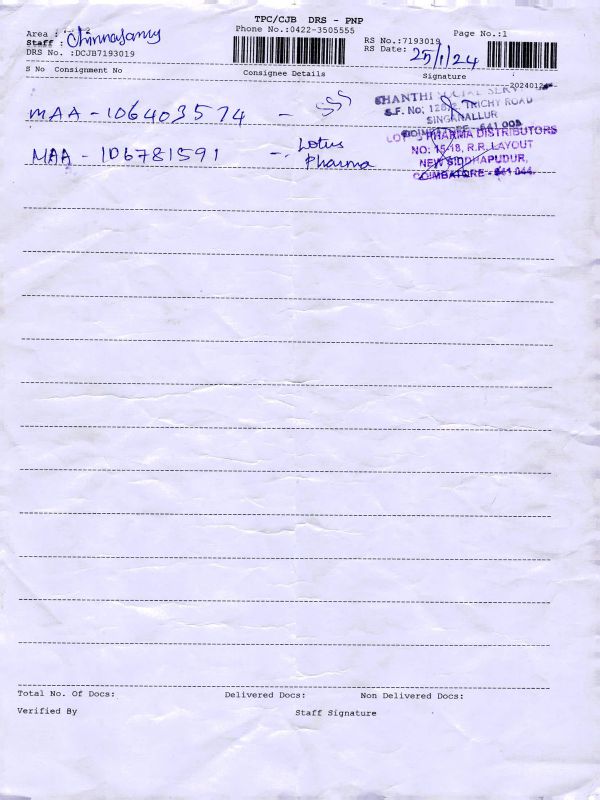 TPC/CJB DRS - PNP
Area : Phone No.:0422-3505555 Page No.:1
Staff : Chinnasamy RS No.:7193019
DRS No. :DCJB7193019 RS Date: 25/1/24
S No Consignment No Consignee Details Signature
MAA - 106403574 - SSS
SHANTHI SOCIAL SERV
S.F. No; TRICHY ROAD
SINGANALLUR
COIMBATORE - 641 005
MAA - 106781591 - Lotus
Pharma
PHARMA DISTRIBUTORS
NO: 15-18, R.R. LAYOUT
NEW SIDDHAPUDUR,
COIMBATORE - 641 044.
Total No. Of Docs: Delivered Docs: Non Delivered Docs:
Verified By Staff Signature